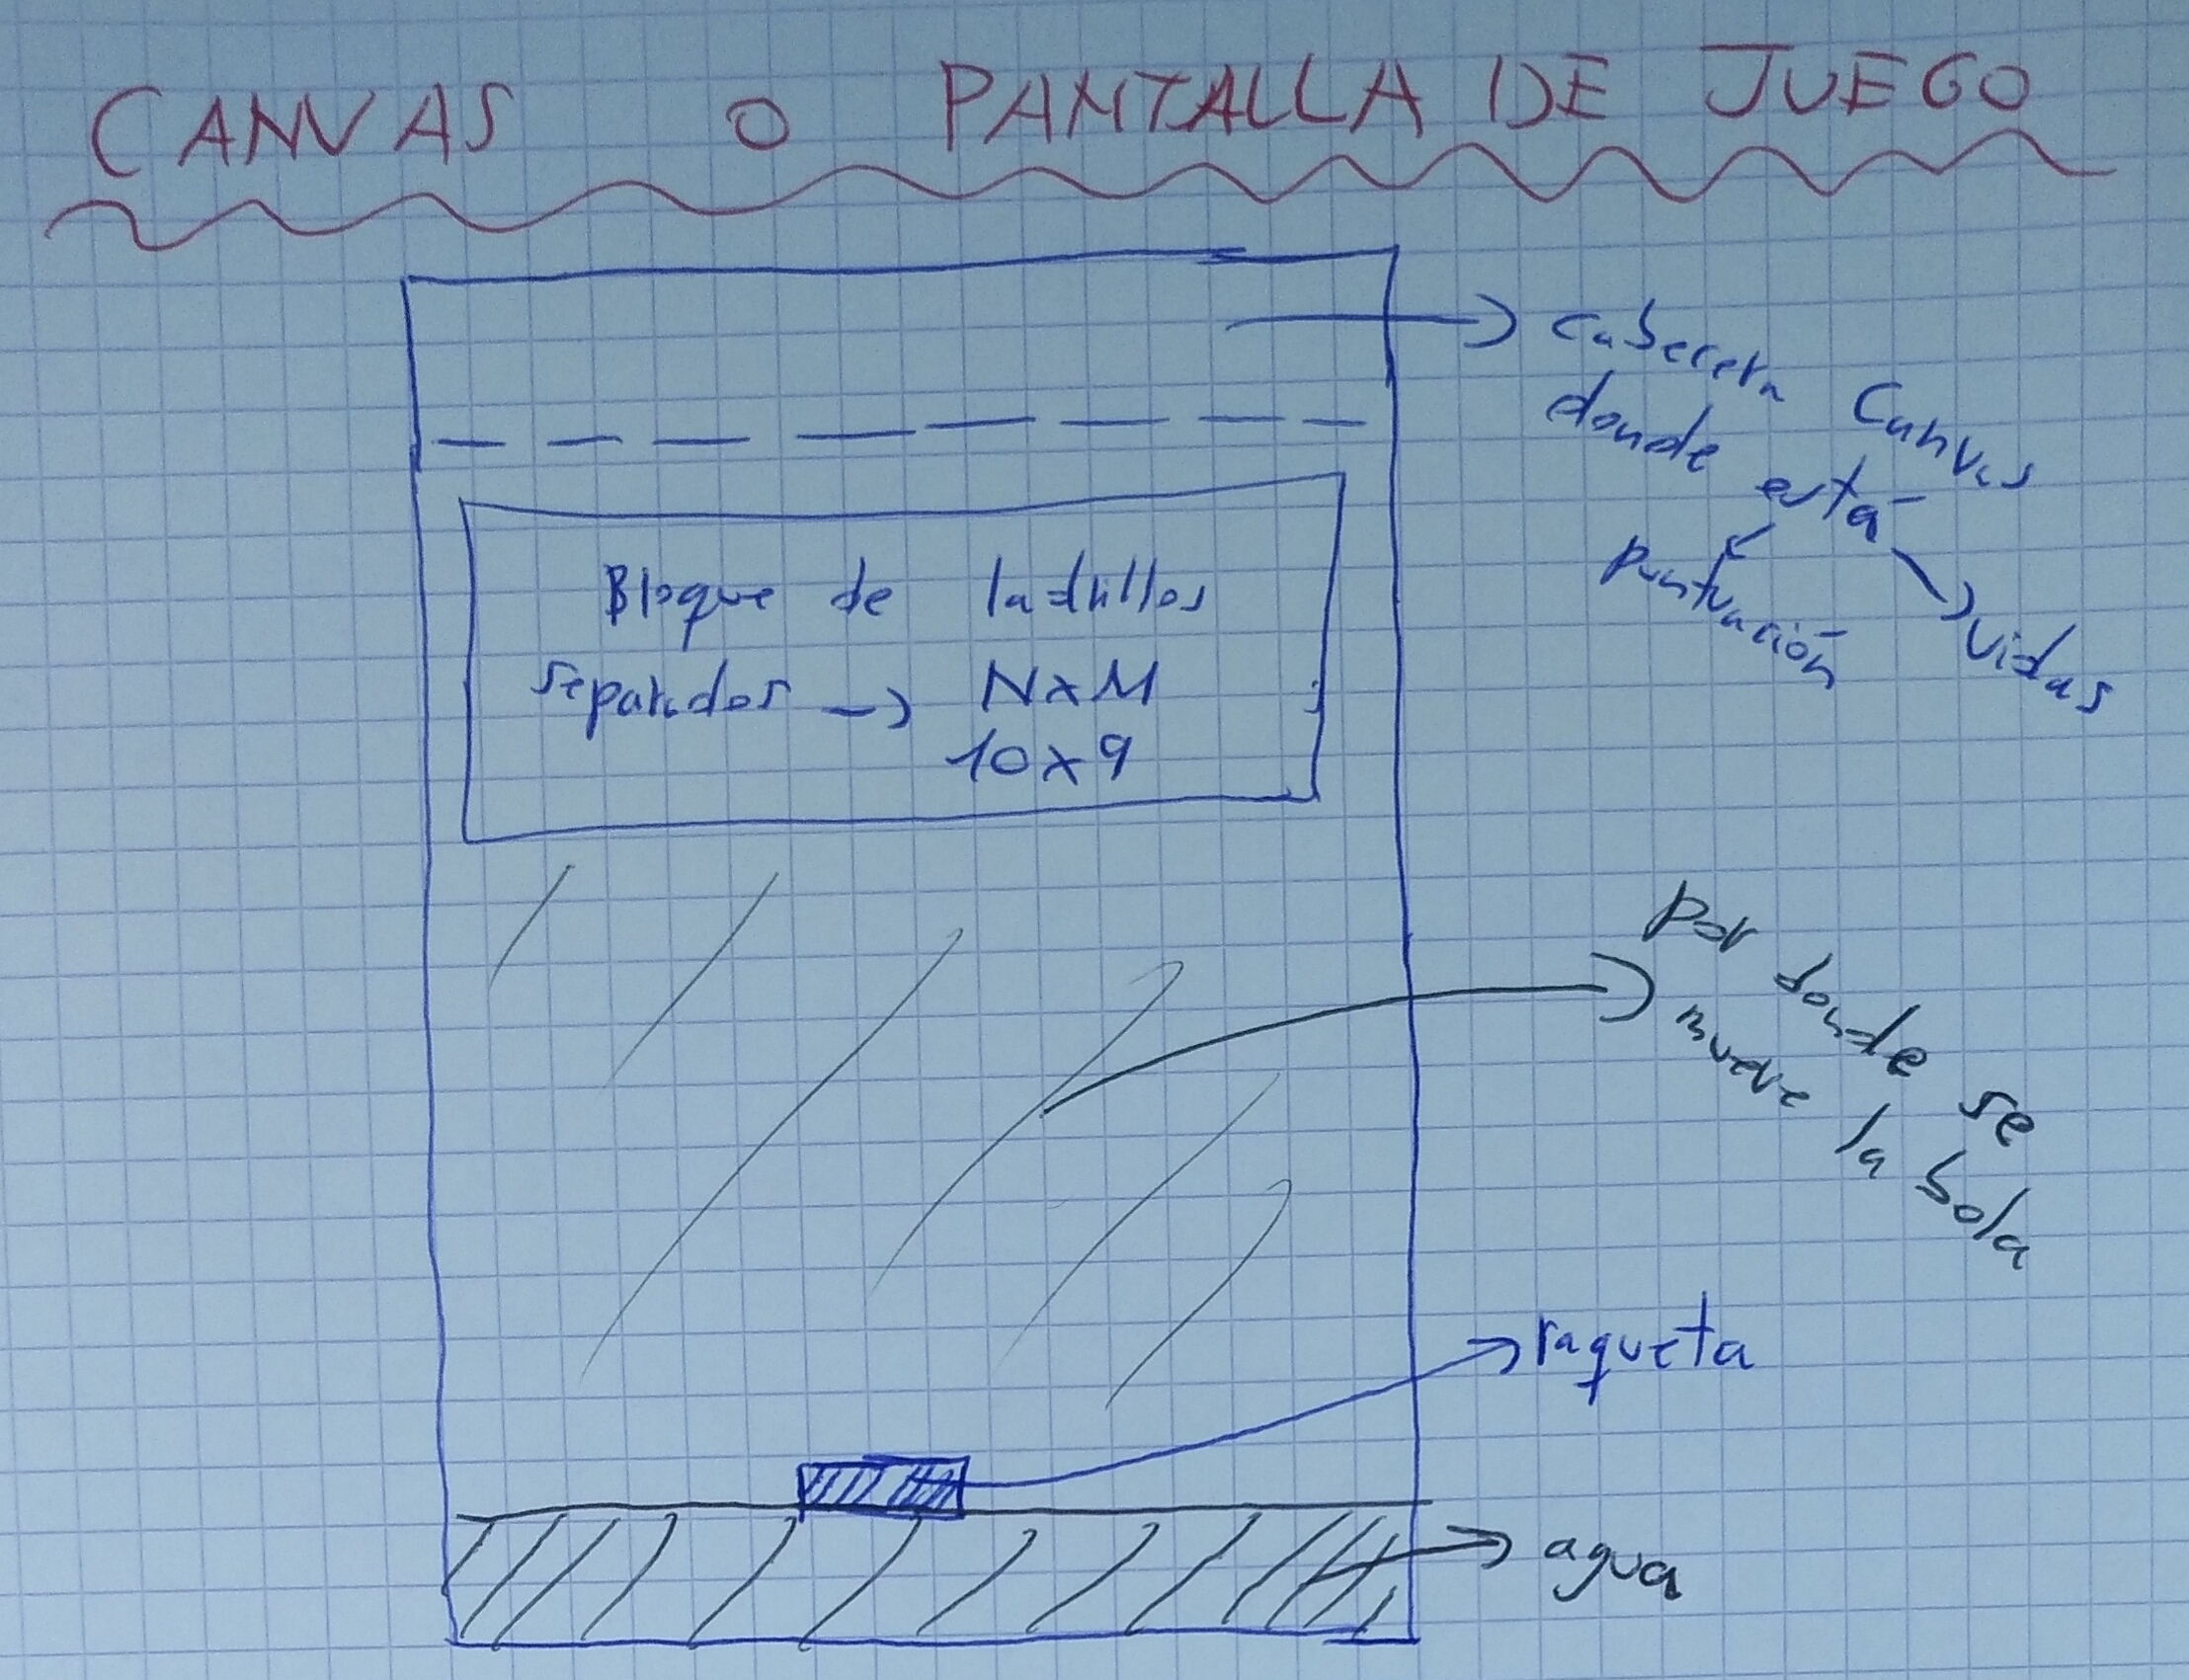 CANVAS O PANTALLA DE JUEGO
cabecera Canvas
donde está
puntuación
vidas
Bloque de ladrillos
separados → NxM
10x9
por donde se
mueve la bola
raqueta
agua